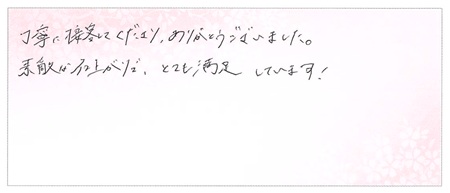 丁寧に接客してくださり、ありがとうございました。
素敵な仕上がりで、とても満足しています！